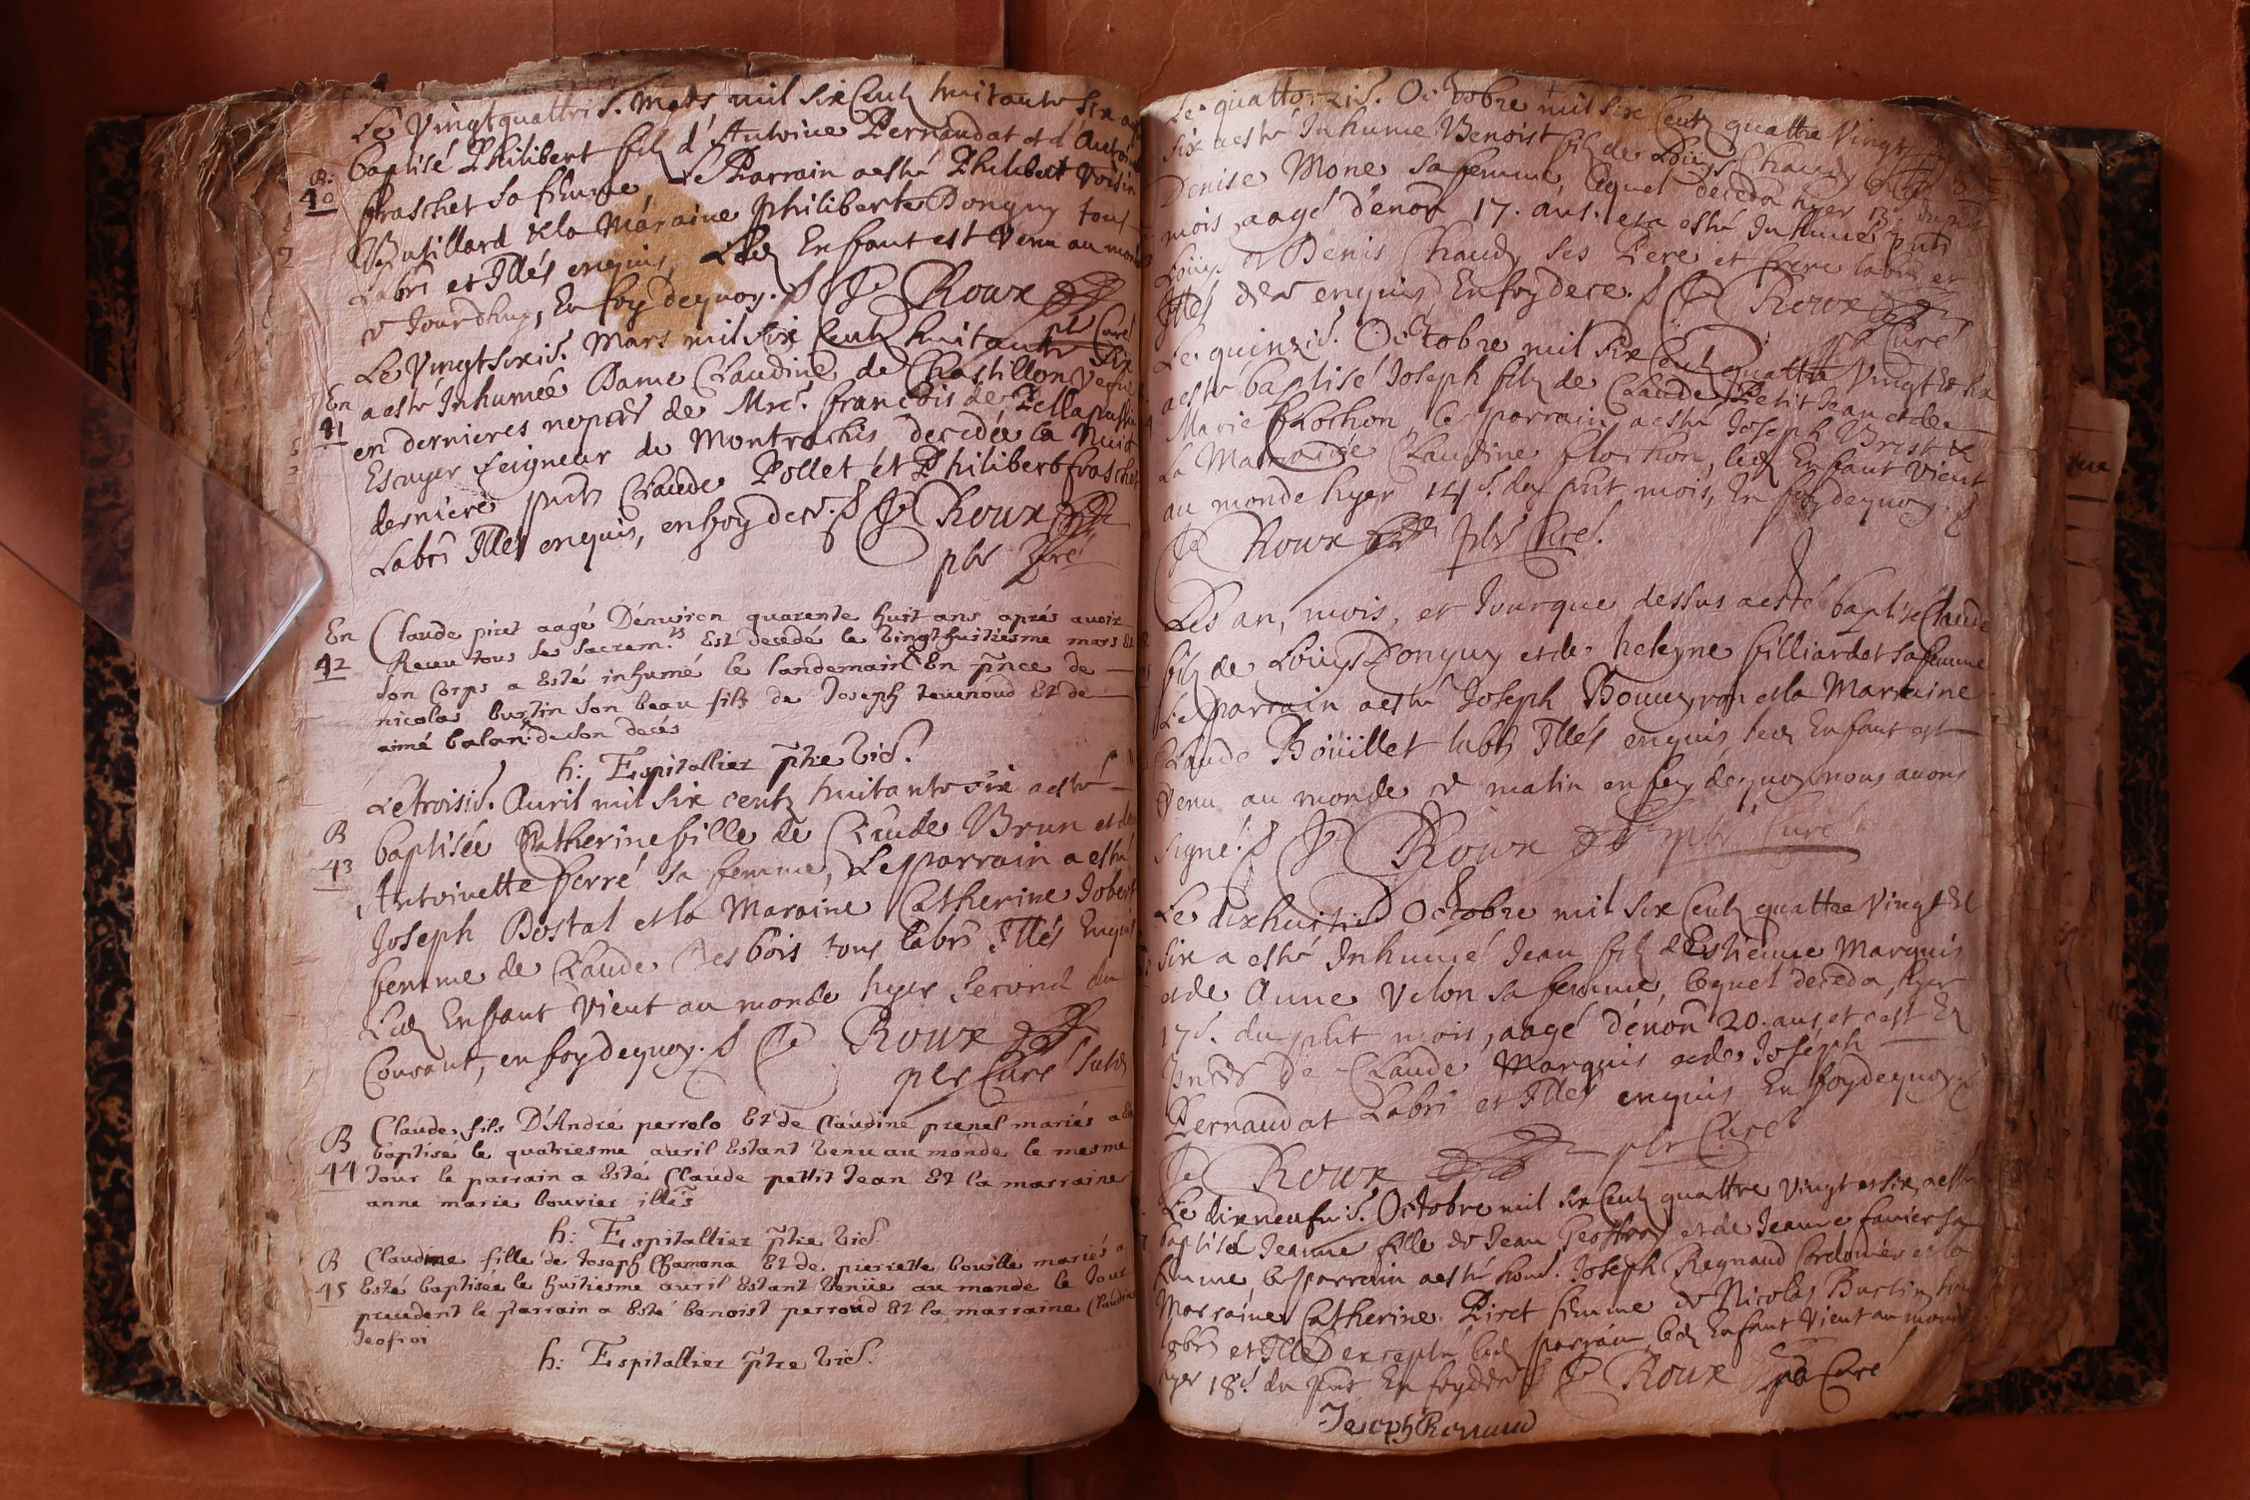 Le Vingtquattries. Mars mil six Centz huitante six a
baptisé Philibert filz d'Antoine Pernaudat et d'
B.
40
fraschet sa femme Le Parrain aesté Philibert Voisin
Butillard et la Maraine Philiberte Donguy tous
Labrs et Illés enquis, Led Enfant est Venu au
Jourdhuy, En foy dequoy. Roux
pbr Curé
Le Vingtsixis. Mars mil six Centz huitante Six
En
41
aesté Inhumeé Dame Claudine de Chastillon Vefve
en dernieres nopces de Mre. francois de
Escuyer Seigneur de decedée la Nuit
derniere pnts Claude Pollet et Philibert fraschet
Labrs Illés enquis, en foy dece. Roux
pbr Curé
En
42
Claude piret aagé D'enuiron quarente huit ans aprés auoir
Receu tous les Sacrem.ts Est decedé le Vingthuitiesme mars Et
son Corps a Esté inhumé le landemain En pnce de
nicolas burtin son beau fils de Joseph teuenoud Et de
aimé balan: de son decés
h: Espitallier ptre Vic.
Le troisis. Auril mil six centz huitante six aesté
B
43
baptisée Catherine fille de Claude Brun et de
Antoinette ferré sa femme, Le parrain a esté
Joseph Postal et la Maraine Catherine Jobert
femme de Claude Desbois tous labrs Illés Enquis
Led Enfant Vient au monde hyer Second du
Courant, en foy dequoy. Roux
pbr Curé
B
44
Claude, fils D'André perrolo Et de Claudine prenel mariés a
baptisé le quatriesme auril Estant Venu au monde le mesme
Jour le parrain a Esté Claude pettit Jean Et la marraine
anne marie bouvier illés
h: Espitallier ptre Vic.
B
45
Claudine fille de Joseph Chamona Et de pierrette bouille mariés a
Esté baptisée le huitiesme auril Estant Venüe au monde le Jour
precedent le parrain a Esté benoist perraud Et la marraine Claudine
Jeofroi
h: Espitallier ptre Vic.
Le quattorzis. Octobre mil six Centz quattre Vingt
six aesté Inhumé Benoist filz de Loüys Chaudy et de
Denise Mone sa femme, lequel deceda hyer 13. du pnt
mois, aagé d'enon 17. ans. et a esté Inhumé pnts
Loüys et Denis Chaudy ses Pere et frere labrs et
Illés de ce enquis En foy de ce. Roux
pbr Curé
Le quinzis. Octobre mil six Centz quattre Vingt et six
aesté baptisé Joseph filz de Claude Petit Jean et de
Marie flochon, le parrain aesté Joseph Brest et
la Marraine Claudine flochon, led Enfant Vient
au monde hyer 14.s du pnt mois, En foy dequoy.
Roux pbr Curé.
Les an, mois, et Jour que dessus aesté baptisé Claude
filz de Loüys Donguy et de heleyne billiardet sa femme
Le parrain aesté Joseph Bouueyron et la Marraine
Claude Boüillet labrs Illés enquis, led Enfant est
Venu au monde ce matin en foy dequoy nous auons
signé. Roux pbr Curé
Le dixhuitis Octobre mil six Centz quattre Vingt Et
six a esté Inhumé Jean filz d'Estienne Marquis
et de Anne Velon sa femme, lequel deceda hyer
17.s du pnt mois, aagé d'enon 20. ans, et aest En
pnces de Claude Marquis et de Joseph
Pernaudat Labrs et Illés enquis En foy dequoy
Roux pbr Curé
Le dixneufuis. Octobre mil six Centz quattre Vingt et six, aesté
baptisée Jeanne fille de Jean Geoffray et de Jeanne fauier sa
femme le parrain aesté hon. Joseph Reynaud Cordonnier et la
Marraine Catherine Piret femme de Nicolas Burtin tous
labrs et Illés excepté led parrain, led Enfant Vient au monde
hyer 18.s du pnt En foy de ce Roux pbr Curé
Joseph Reynaud